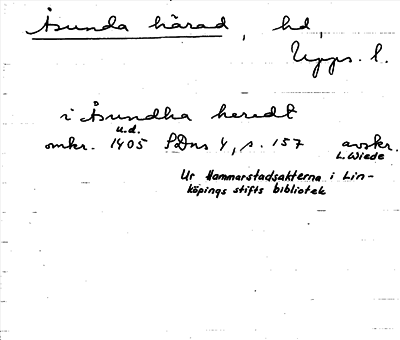 Åsunda härad, hd,
Upps. l.
i Åsundha heredt
u.d.
omkr. 1405 SDns 4, s. 157 avskr.
L. Wiede
Ur Hammarstadsakterna i Lin-
köpings stifts bibliotek